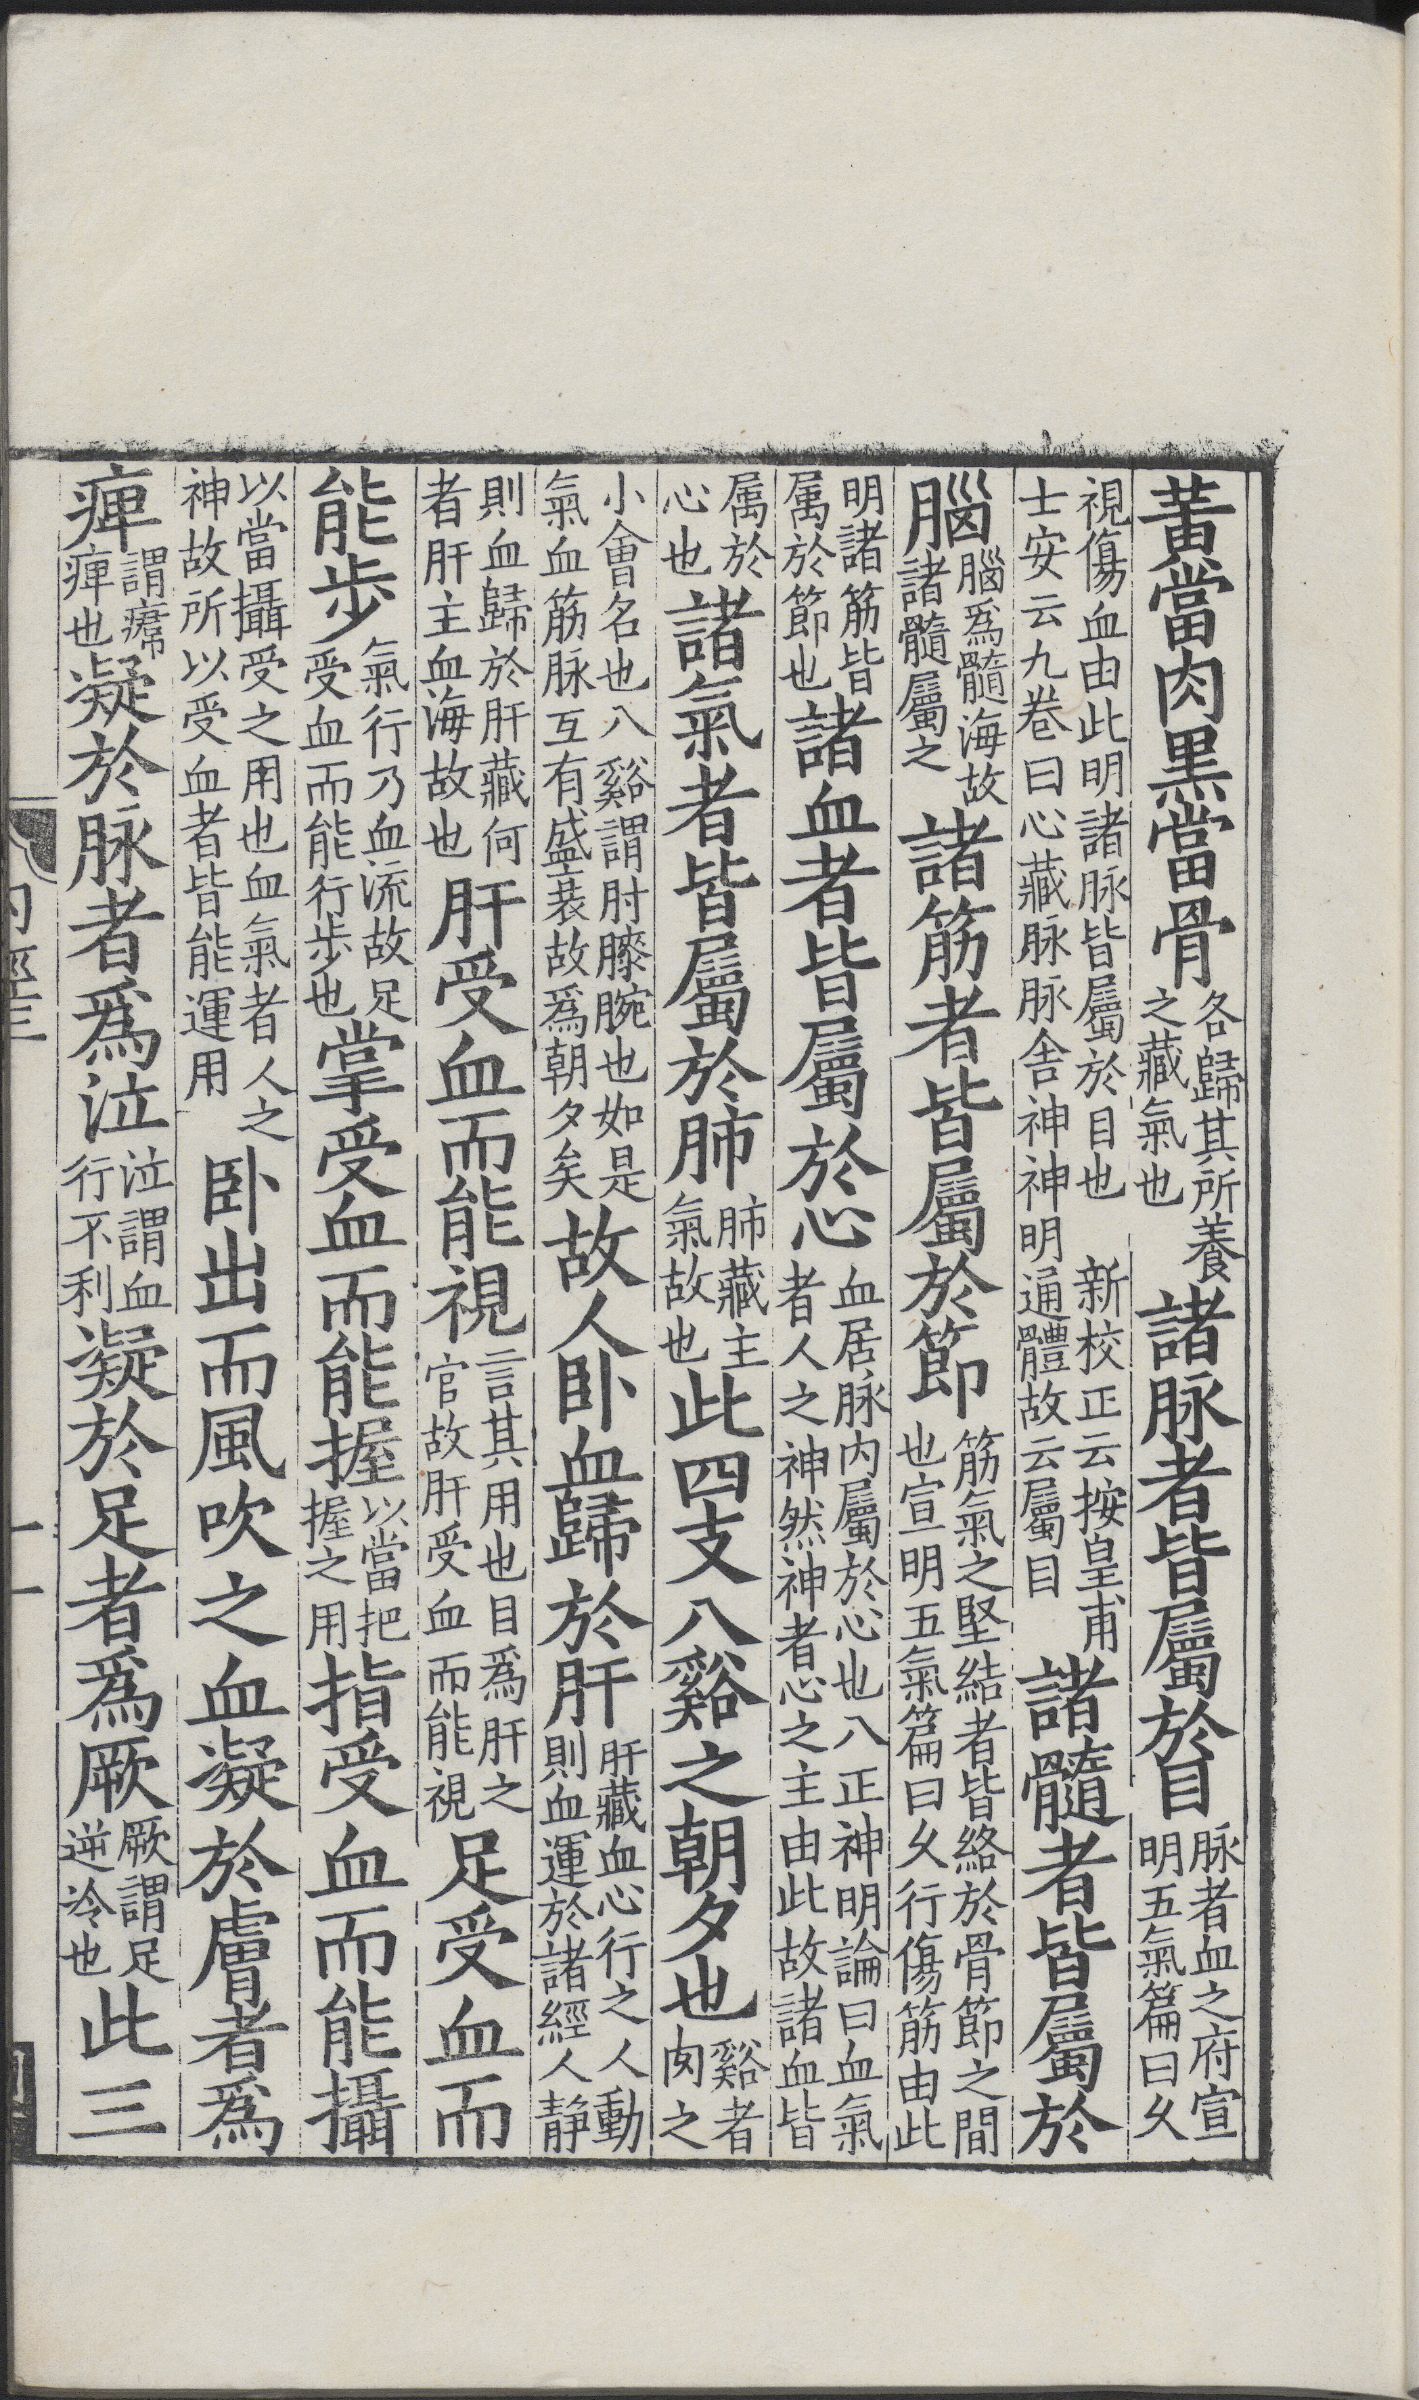 黃當肉黑當骨各歸其所養之藏氣也諸脉者皆屬於目脉者血之府宣明五氣篇曰乆
視傷血由此明諸脉皆屬於目也　新校正云按皇甫士安云九卷曰心藏脉脉舍神神明通體故云屬目諸髓者皆屬於
腦腦爲髓海故諸髓屬之諸筋者皆屬於節筋氣之堅結者皆絡於骨節之間也宣明五氣篇曰乆行傷筋由此
明諸筋皆属於節也諸血者皆屬於心血居脉内屬於心也八正神明論曰血氣者人之神然神者心之主由此故諸血皆
属於心也諸氣者皆屬於肺肺藏主氣故也此四支八谿之朝夕也谿者肉之
小會名也八谿謂肘膝腕也如是氣血筋脉互有盛衰故爲朝夕矣故人卧血歸於肝肝藏血心行之人動則血運於諸經人静
則血歸於肝藏何者肝主血海故也肝受血而能視言其用也目爲肝之官故肝受血而能視足受血而
能步氣行乃血流故足受血而能行步也掌受血而能握以當把握之用指受血而能攝
以當攝受之用也血氣者人之神故所以受血者皆能運用卧出而風吹之血凝於膚者爲
痺謂㿏痺也凝於脉者爲泣泣謂血行不利凝於足者爲厥厥謂足逆冷也此三
内經三
十一